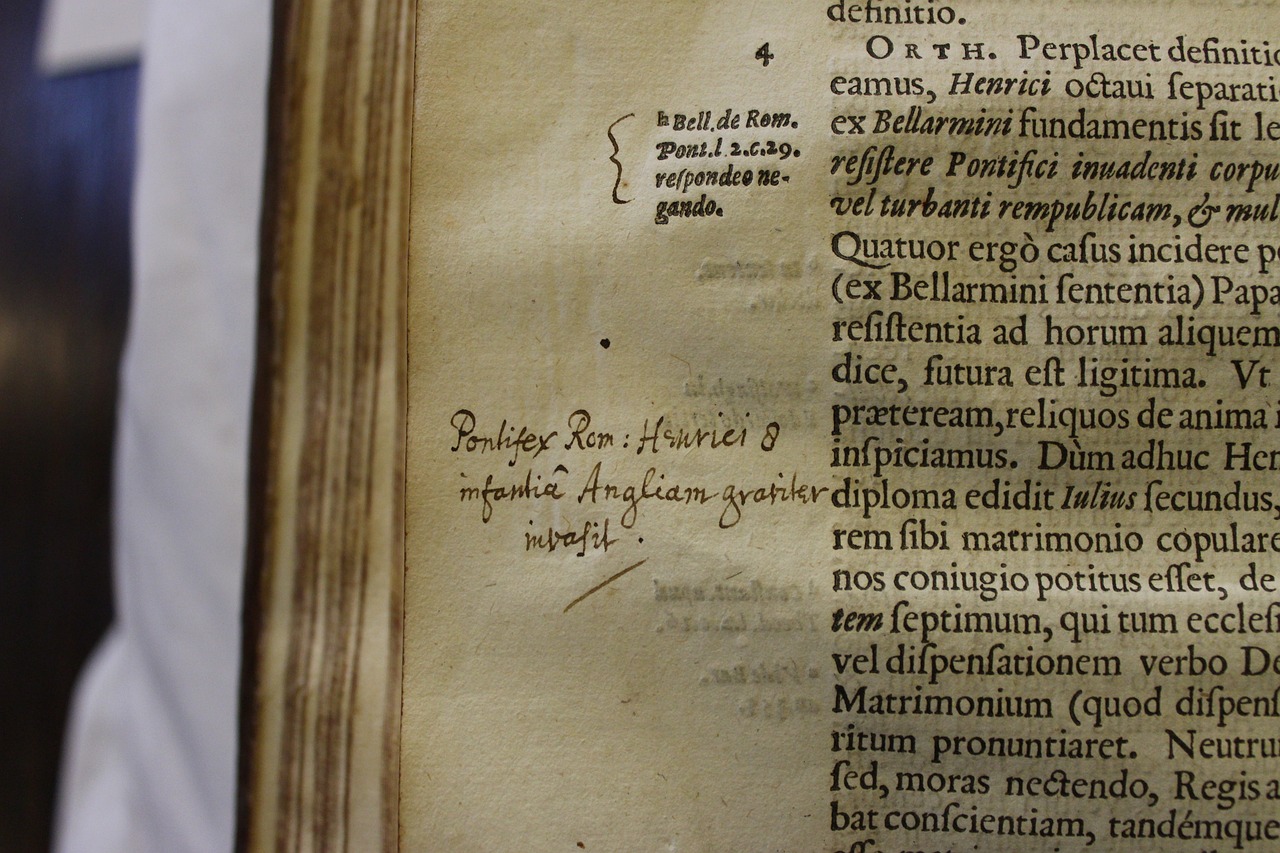 definitio.
4
ORTH. Perplacet definitio
eamus, Henrici octaui ſeparati
h Bell. de Rom.
Pont. l. 2. c. 29.
reſpondeo ne-
gando.
ex Bellarmini fundamentis ſit le
reſiſtere Pontifici inuadenti corpu
vel turbanti rempublicam, & mul
Quatuor ergò caſus incidere po
(ex Bellarmini ſententia) Papa
reſiſtentia ad horum aliquem
dice, futura eſt ligitima. Vt
præteream, reliquos de anima i
inſpiciamus. Dùm adhuc Hen
Pontifex Rom: Henrici 8
infantiâ Angliam graviter
invaſit .
diploma edidit Iulius ſecundus,
rem ſibi matrimonio copulare
nos coniugio potitus eſſet, de
tem ſeptimum, qui tum eccleſi
vel diſpenſationem verbo De
Matrimonium (quod diſpenſ
ritum pronuntiaret. Neutru
ſed, moras nectendo, Regis a
bat conſcientiam, tandémque